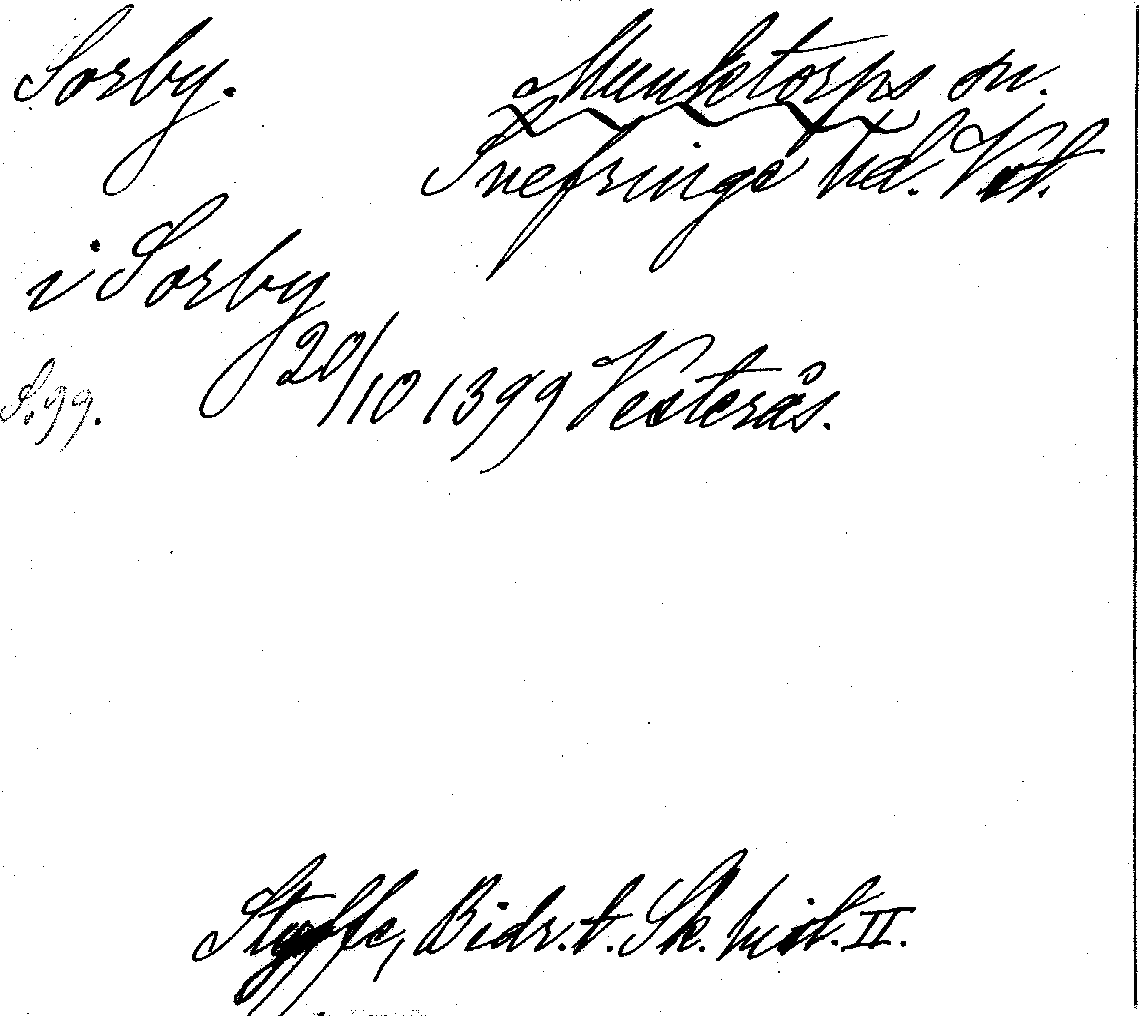 Sorby.
Munktorps sn.
Snefringe hd. Vstm.
i Sorby
20/10 1399 Vesterås.
S. 99.
Styffe, Bidr. t. Sk. hist. II.